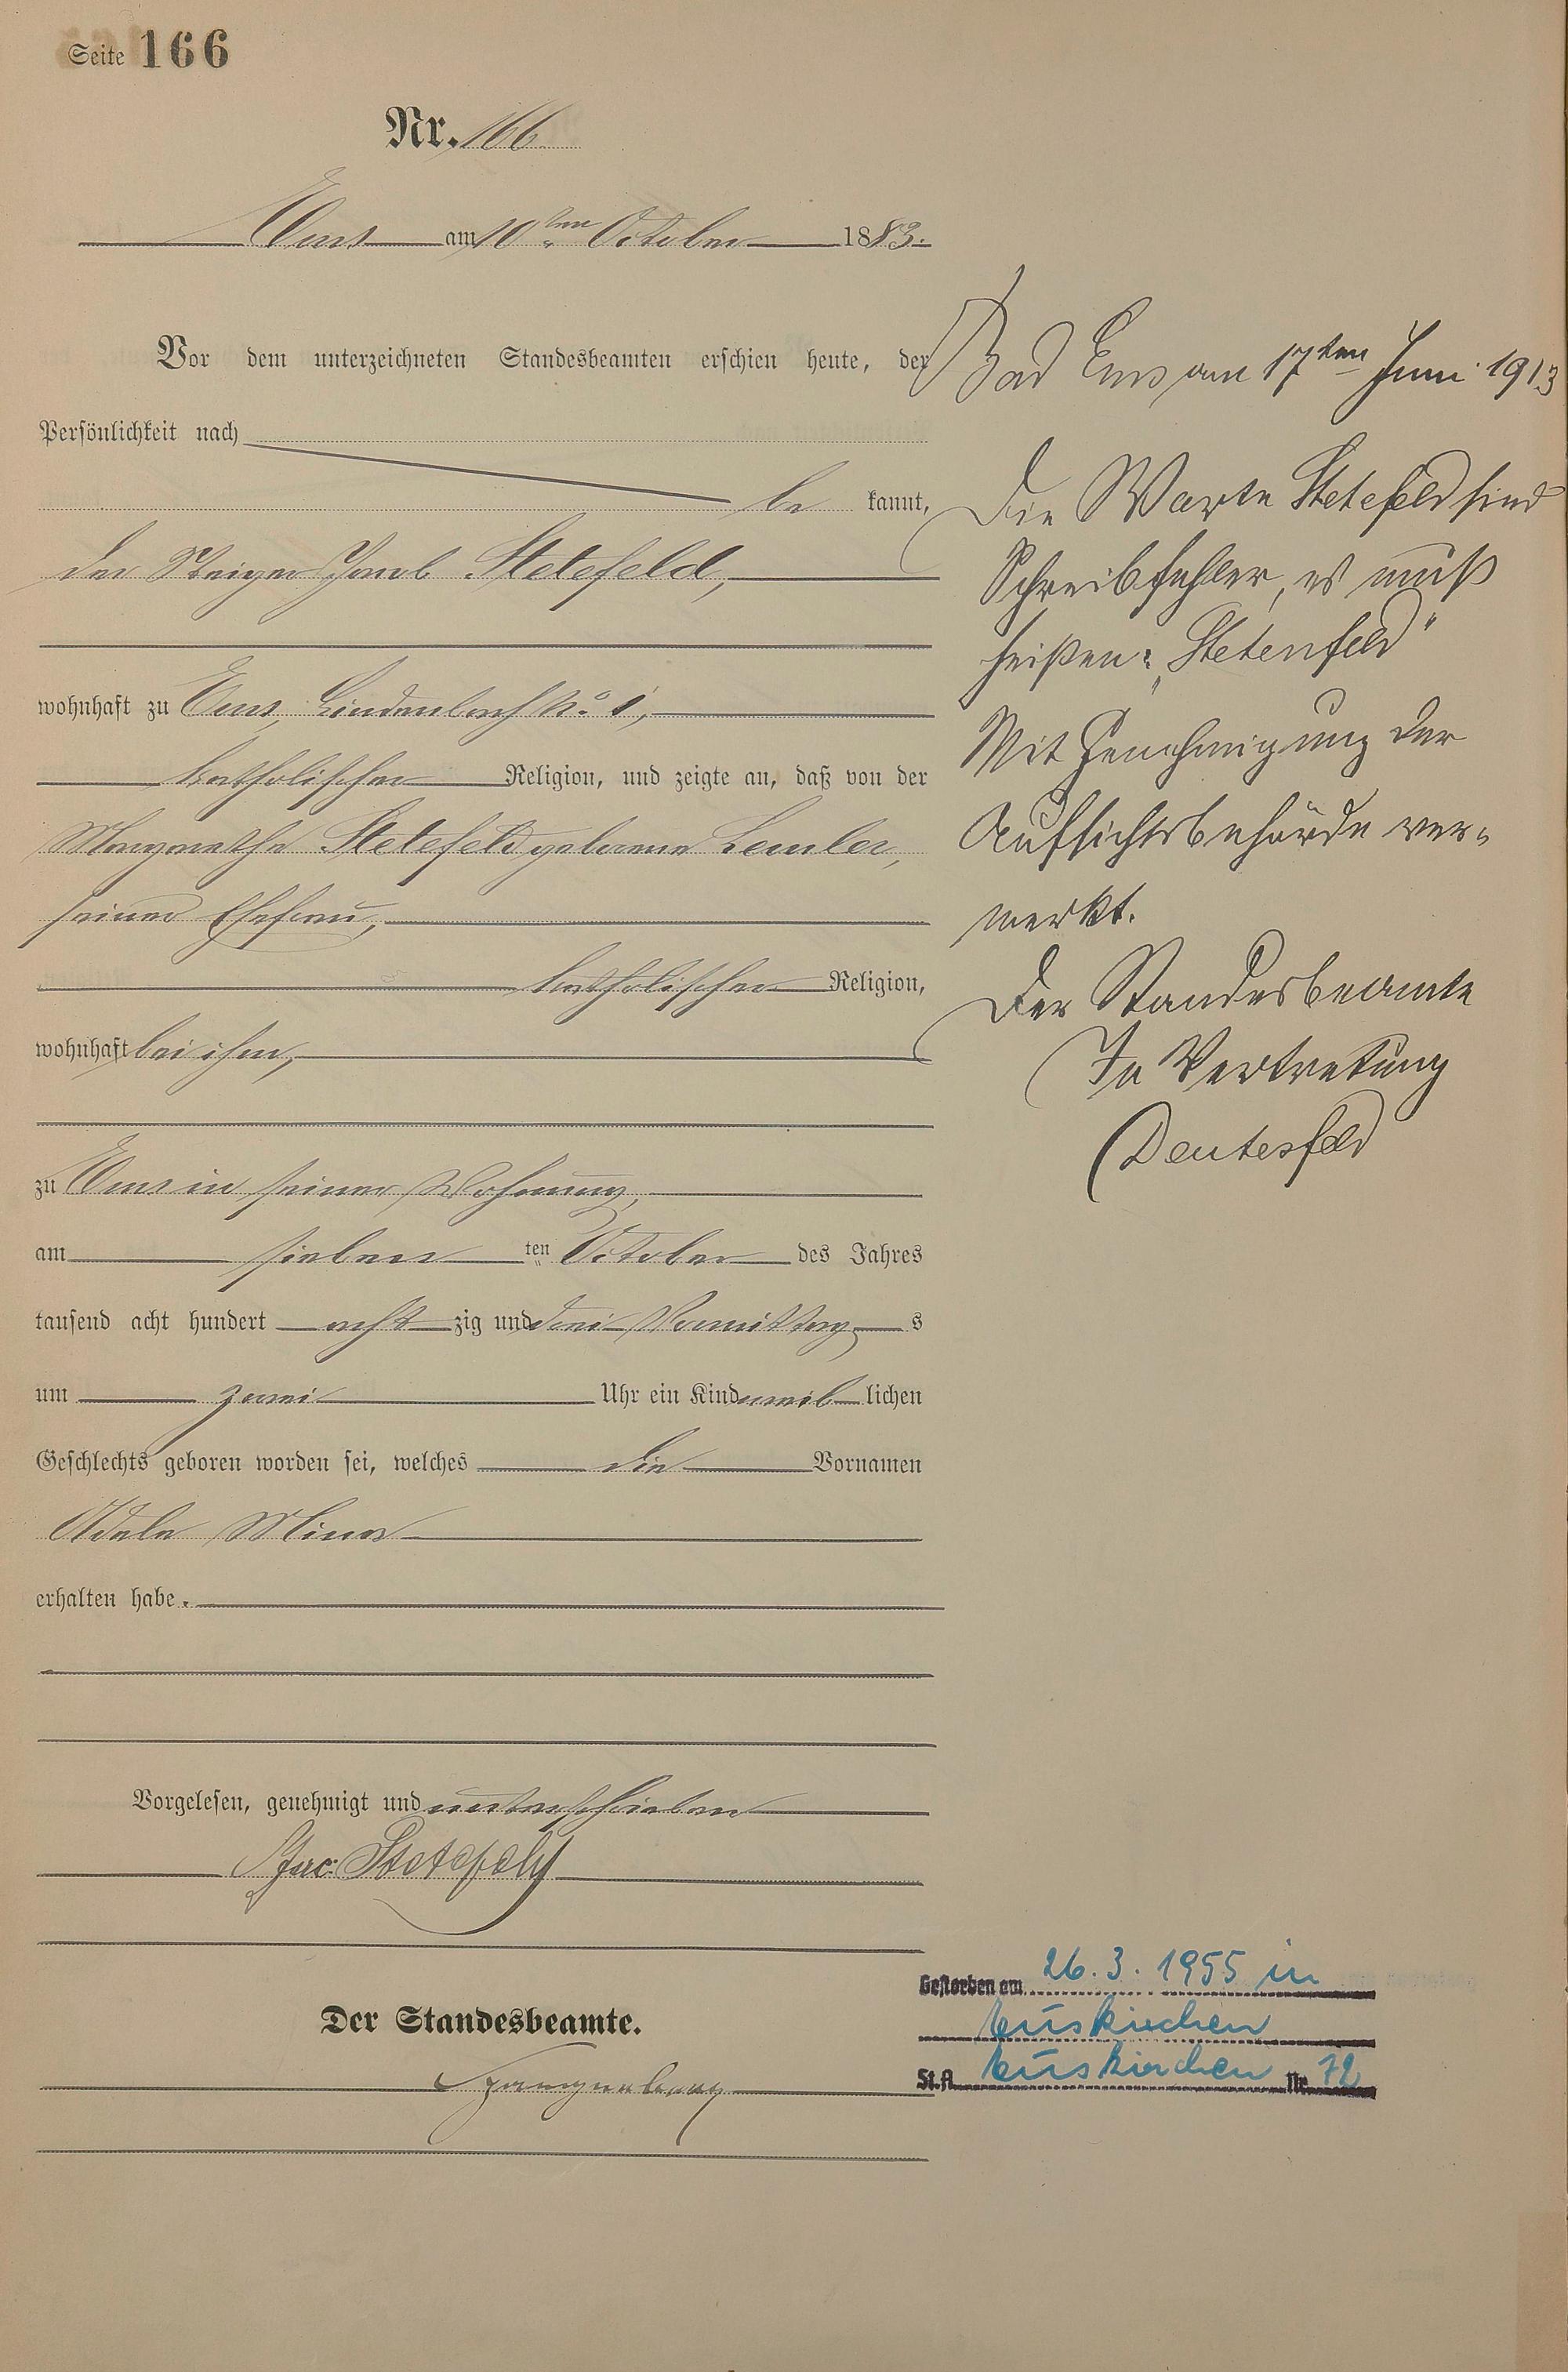 Seite 166
Nr. 166
Ems am 10ten October 1883.
Vor dem unterzeichneten Standesbeamten erschien heute, der
Persönlichkeit nach
be kannt,
der Steiger Jacob Stetefeld,
wohnhaft zu Ems, Lindenbach No. 1,
katholischer Religion, und zeigte an, daß von der
Margarethe Stetefeld geborene Lemler,
seiner Ehefrau,
katholischer Religion,
wohnhaft bei ihm,
zu Ems in seiner Wohnung,
am sieben ten October des Jahres
tausend acht hundert acht zig und drei Vormittag s
um zwei Uhr ein Kind weib lichen
Geschlechts geboren worden sei, welches die Vornamen
Adele Mina
erhalten habe.
Vorgelesen, genehmigt und unterschrieben
Jac. Stetefeld
Der Standesbeamte.
Bad Ems am 17ten Juni 1913
Die Worte Stetefeld sind
Schreibfehler, es muß
heißen: „Stetenfeld"
Mit Genehmigung der
Aufsichtsbehörde ver-
merkt.
Der Standesbeamte
In Vertretung
Deutesfeld
Gestorben am 26.3.1955 in
Euskirchen
St.A. Euskirchen Nr. 72